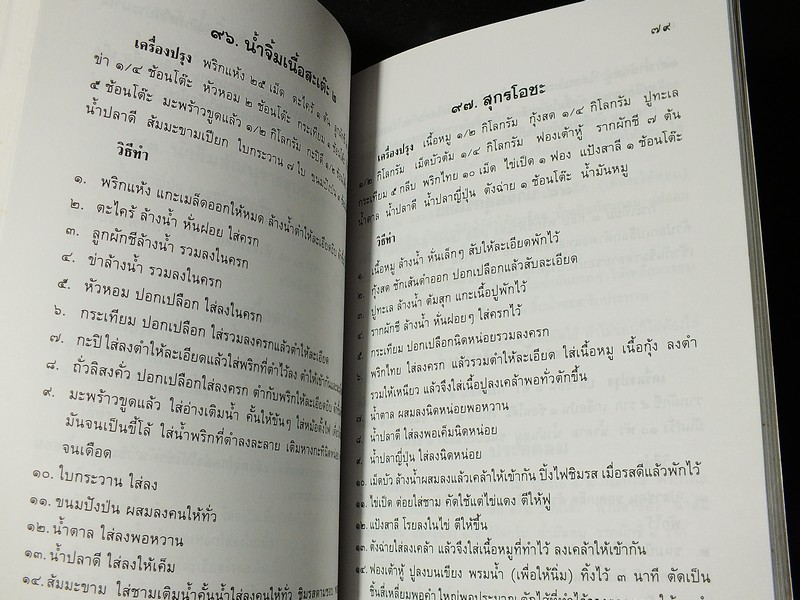 ๙๖. น้ำจิ้มเนื้อสะเต๊ะ ๒
เครื่องปรุง พริกแห้ง ๒๕ เม็ด ตะไคร้ ๑ ต้น
ข่า ๑/๔ ช้อนโต๊ะ หัวหอม ๒ ช้อนโต๊ะ กระเทียม ๑ ช้อนโต๊ะ
๕ ช้อนโต๊ะ มะพร้าวขูดแล้ว ๑/๒ กิโลกรัม กะปิดี ๑/๒ ช้อนโต๊ะ
น้ำปลาดี ส้มมะขามเปียก ใบกระวาน ๗ ใบ ขนมปังป่น
วิธีทำ
๑. พริกแห้ง แกะเมล็ดออกให้หมด ล้างน้ำตำให้ละเอียด
๒. ตะไคร้ ล้างน้ำ หั่นฝอย ใส่ครก
๓. ลูกผักชีล้างน้ำ รวมลงในครก
๔. ข่าล้างน้ำ รวมลงในครก
๕. หัวหอม ปอกเปลือก ใส่ลงในครก
๖. กระเทียม ปอกเปลือก ใส่รวมลงครกแล้วตำให้ละเอียด
๗. กะปิใส่ลงตำให้ละเอียดแล้วใส่พริกที่ตำไว้ลง ตำให้เข้ากัน
๘. ถั่วลิสงคั่ว ปอกเปลือกใส่ลงครก ตำกับพริกให้ละเอียด
๙. มะพร้าวขูดแล้ว ใส่อ่างเติมน้ำ คั้นให้ข้นๆ ใส่หม้อตั้งไฟ
มันจนเป็นขี้โล้ ใส่น้ำพริกที่ตำลงละลาย เติมหางกะทินิดหน่อย
จนเดือด
๑๐. ใบกระวาน ใส่ลง
๑๑. ขนมปังป่น ผสมลงคนให้ทั่ว
๑๒. น้ำตาล ใส่ลงพอหวาน
๑๓. น้ำปลาดี ใส่ลงให้เค็ม
๑๔. ส้มมะขาม ใส่ชามเติมน้ำคั้นน้ำใส่ลงคนให้ทั่ว ชิมรสตามชอบ
๗๙
๙๗. สุกรโอชะ
เครื่องปรุง เนื้อหมู ๑/๒ กิโลกรัม กุ้งสด ๑/๔ กิโลกรัม ปูทะเล
๑/๒ กิโลกรัม เม็ดบัวต้ม ๑/๔ กิโลกรัม ฟองเต้าหู้ รากผักชี ๗ ต้น
กระเทียม ๕ กลีบ พริกไทย ๑๐ เม็ด ไข่เป็ด ๑ ฟอง แป้งสาลี ๑ ช้อนโต๊ะ
น้ำตาล น้ำปลาดี น้ำปลาญี่ปุ่น ตังฉ่าย ๑ ช้อนโต๊ะ น้ำมันหมู
วิธีทำ
๑. เนื้อหมู ล้างน้ำ หั่นเล็กๆ สับให้ละเอียดพักไว้
๒. กุ้งสด ชักเส้นดำออก ปอกเปลือกแล้วสับละเอียด
๓. ปูทะเล ล้างน้ำ ต้มสุก แกะเนื้อปูพักไว้
๔. รากผักชี ล้างน้ำ หั่นฝอยๆ ใส่ครกไว้
๕. กระเทียม ปอกเปลือกนิดหน่อยรวมลงครก
๖. พริกไทย ใส่ลงครก แล้วรวมตำให้ละเอียด ใส่เนื้อหมู เนื้อกุ้ง ลงตำ
รวมให้เหนียว แล้วจึงใส่เนื้อปูลงเคล้าพอทั่วตักขึ้น
๗. น้ำตาล ผสมลงนิดหน่อยพอหวาน
๘. น้ำปลาดี ใส่ลงพอเค็มนิดหน่อย
๙. น้ำปลาญี่ปุ่น ใส่ลงนิดหน่อย
๑๐. เม็ดบัว ล้างน้ำผสมลงแล้วเคล้าให้เข้ากัน ปิ้งไฟชิมรส เมื่อรสดีแล้วพักไว้
๑๑. ไข่เป็ด ต่อยใส่ชาม คัดใช้แต่ไข่แดง ตีให้ฟู
๑๒. แป้งสาลี โรยลงในไข่ ตีให้ขึ้น
๑๓. ตังฉ่ายใส่ลงเคล้า แล้วจึงใส่เนื้อหมูที่ทำไว้ ลงเคล้าให้เข้ากัน
๑๔. ฟองเต้าหู้ ปูลงบนเขียง พรมน้ำ (เพื่อให้นิ่ม) ทิ้งไว้ ๓ นาที ตัดเป็น
ชิ้นสี่เหลี่ยมพอคำ